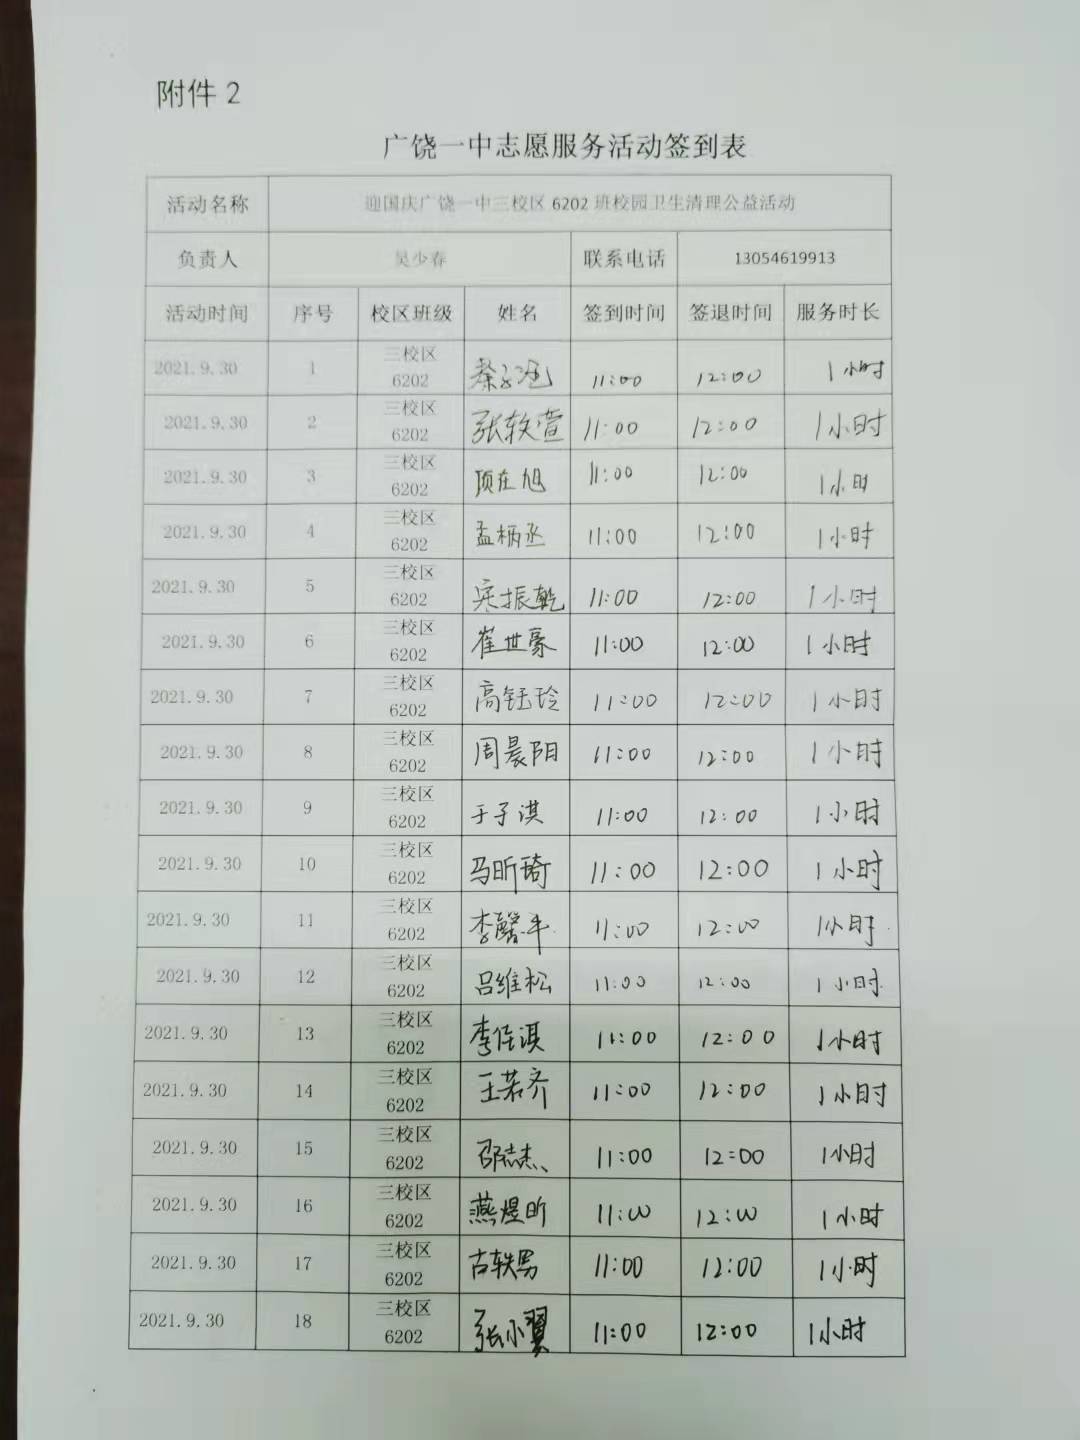 附件 2
广饶一中志愿服务活动签到表
活动名称 迎国庆广饶一中三校区 6202 班校园卫生清理公益活动
负责人 吴少春 联系电话 13054619913
活动时间 序号 校区班级 姓名 签到时间 签退时间 服务时长
2021.9.30 1 三校区 6202 蔡子涵 11:00 12:00 1小时
2021.9.30 2 三校区 6202 张轶萱 11:00 12:00 1小时
2021.9.30 3 三校区 6202 顾在旭 11:00 12:00 1小时
2021.9.30 4 三校区 6202 孟柄丞 11:00 12:00 1小时
2021.9.30 5 三校区 6202 宋振乾 11:00 12:00 1小时
2021.9.30 6 三校区 6202 崔世豪 11:00 12:00 1小时
2021.9.30 7 三校区 6202 高钰玲 11:00 12:00 1小时
2021.9.30 8 三校区 6202 周晨阳 11:00 12:00 1小时
2021.9.30 9 三校区 6202 于子淇 11:00 12:00 1小时
2021.9.30 10 三校区 6202 马昕琦 11:00 12:00 1小时
2021.9.30 11 三校区 6202 李馨平 11:00 12:00 1小时
2021.9.30 12 三校区 6202 吕维松 11:00 12:00 1小时
2021.9.30 13 三校区 6202 李佳淇 11:00 12:00 1小时
2021.9.30 14 三校区 6202 王若齐 11:00 12:00 1小时
2021.9.30 15 三校区 6202 邵志杰 11:00 12:00 1小时
2021.9.30 16 三校区 6202 燕煜昕 11:00 12:00 1小时
2021.9.30 17 三校区 6202 古轶男 11:00 12:00 1小时
2021.9.30 18 三校区 6202 张小翼 11:00 12:00 1小时